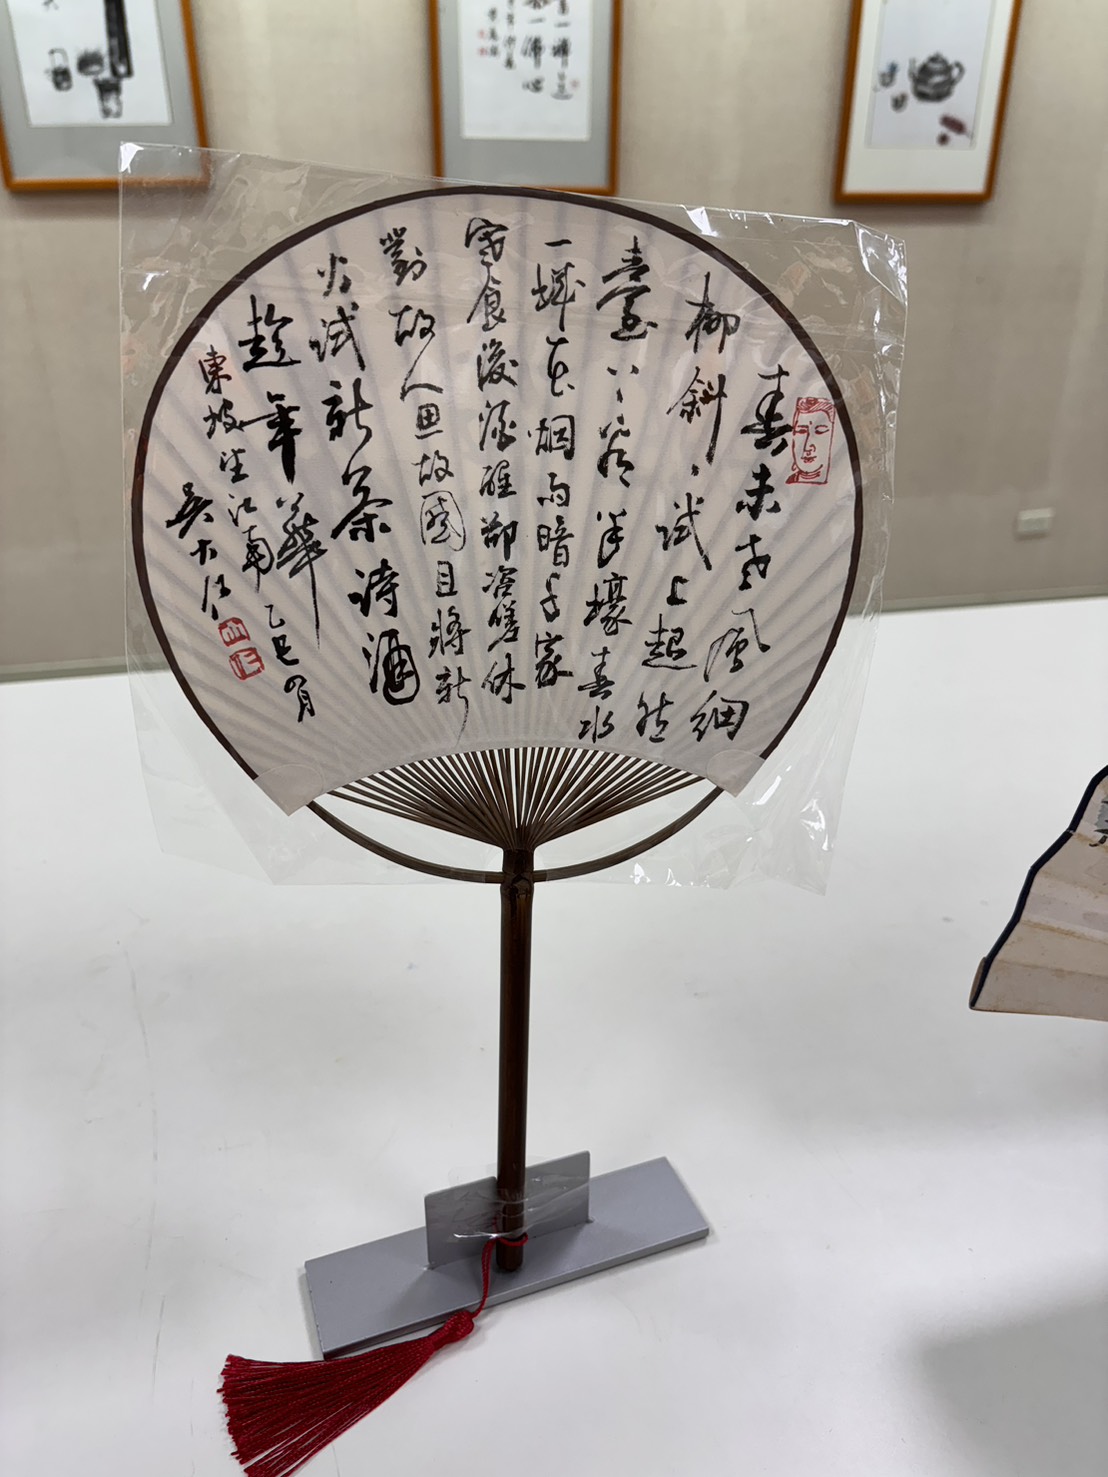 春未老風細
柳斜、試上超然
臺上看半壕春水
一城花烟雨暗千家
寒食後酒醒卻咨嗟休
對故人思故國且將新
火試新茶詩酒
趁年華
東坡望江南 乙巳四月
吴大仁
大仁